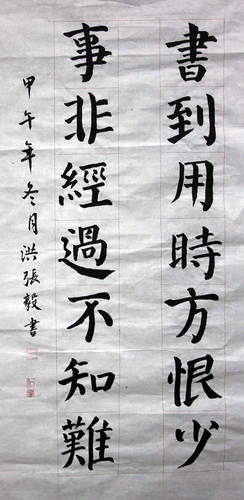 書到用時方恨少
事非經過不知難
甲午年冬月洪張毅書